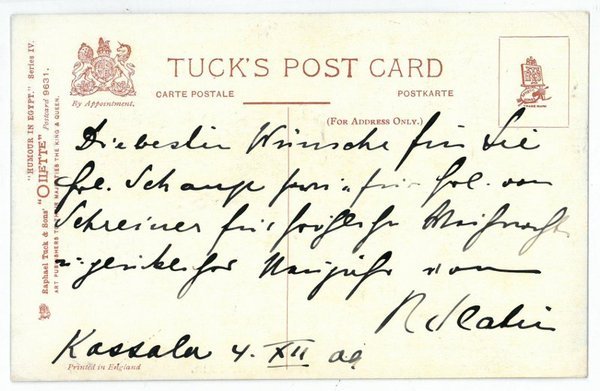 TUCK'S POST CARD
CARTE POSTALE
POSTKARTE
By Appointment.
(FOR ADDRESS ONLY.)
TRADE MARK
Die besten Wünsche für Sie
von
Schreiner für fröhliche Weihnacht
u glückliches Neujahr von
R Slatin
Kassala 4. XII 09
Printed in England
Raphael Tuck & Sons' "OILETTE" Postcard 9631.
"HUMOUR IN EGYPT." Series IV.
ART PUBLISHERS TO THEIR MAJESTIES THE KING & QUEEN.